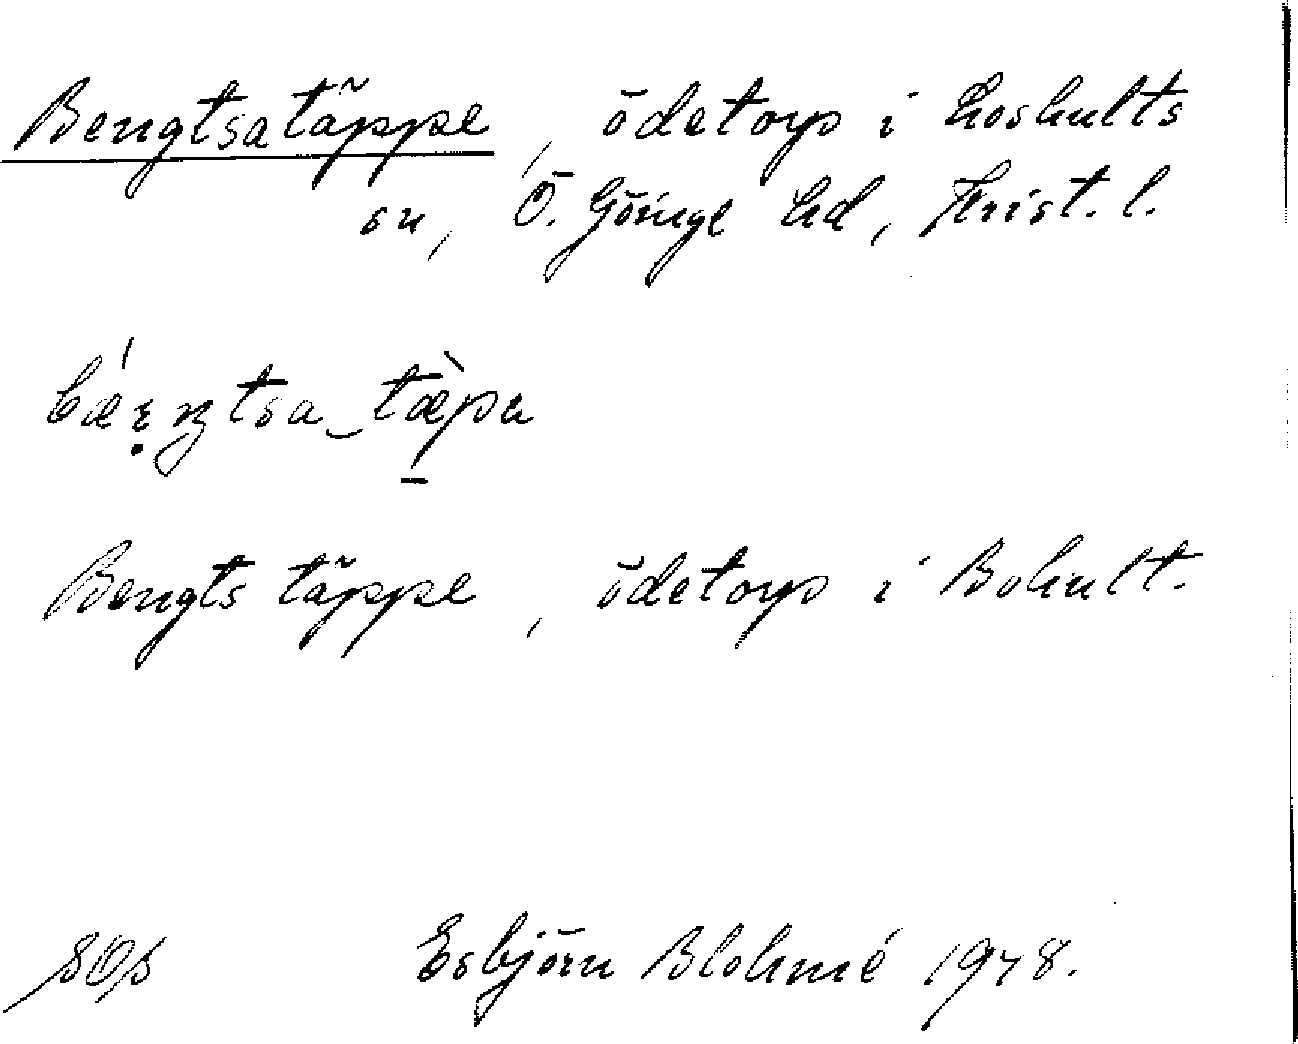 Bengtsatäppe, ödetorp i Loshults
sn, Ö. Göinge hd, Krist. l.
Bengts täppe, ödetorp i Bohult.
SOS Esbjörn Blohmé 1948.